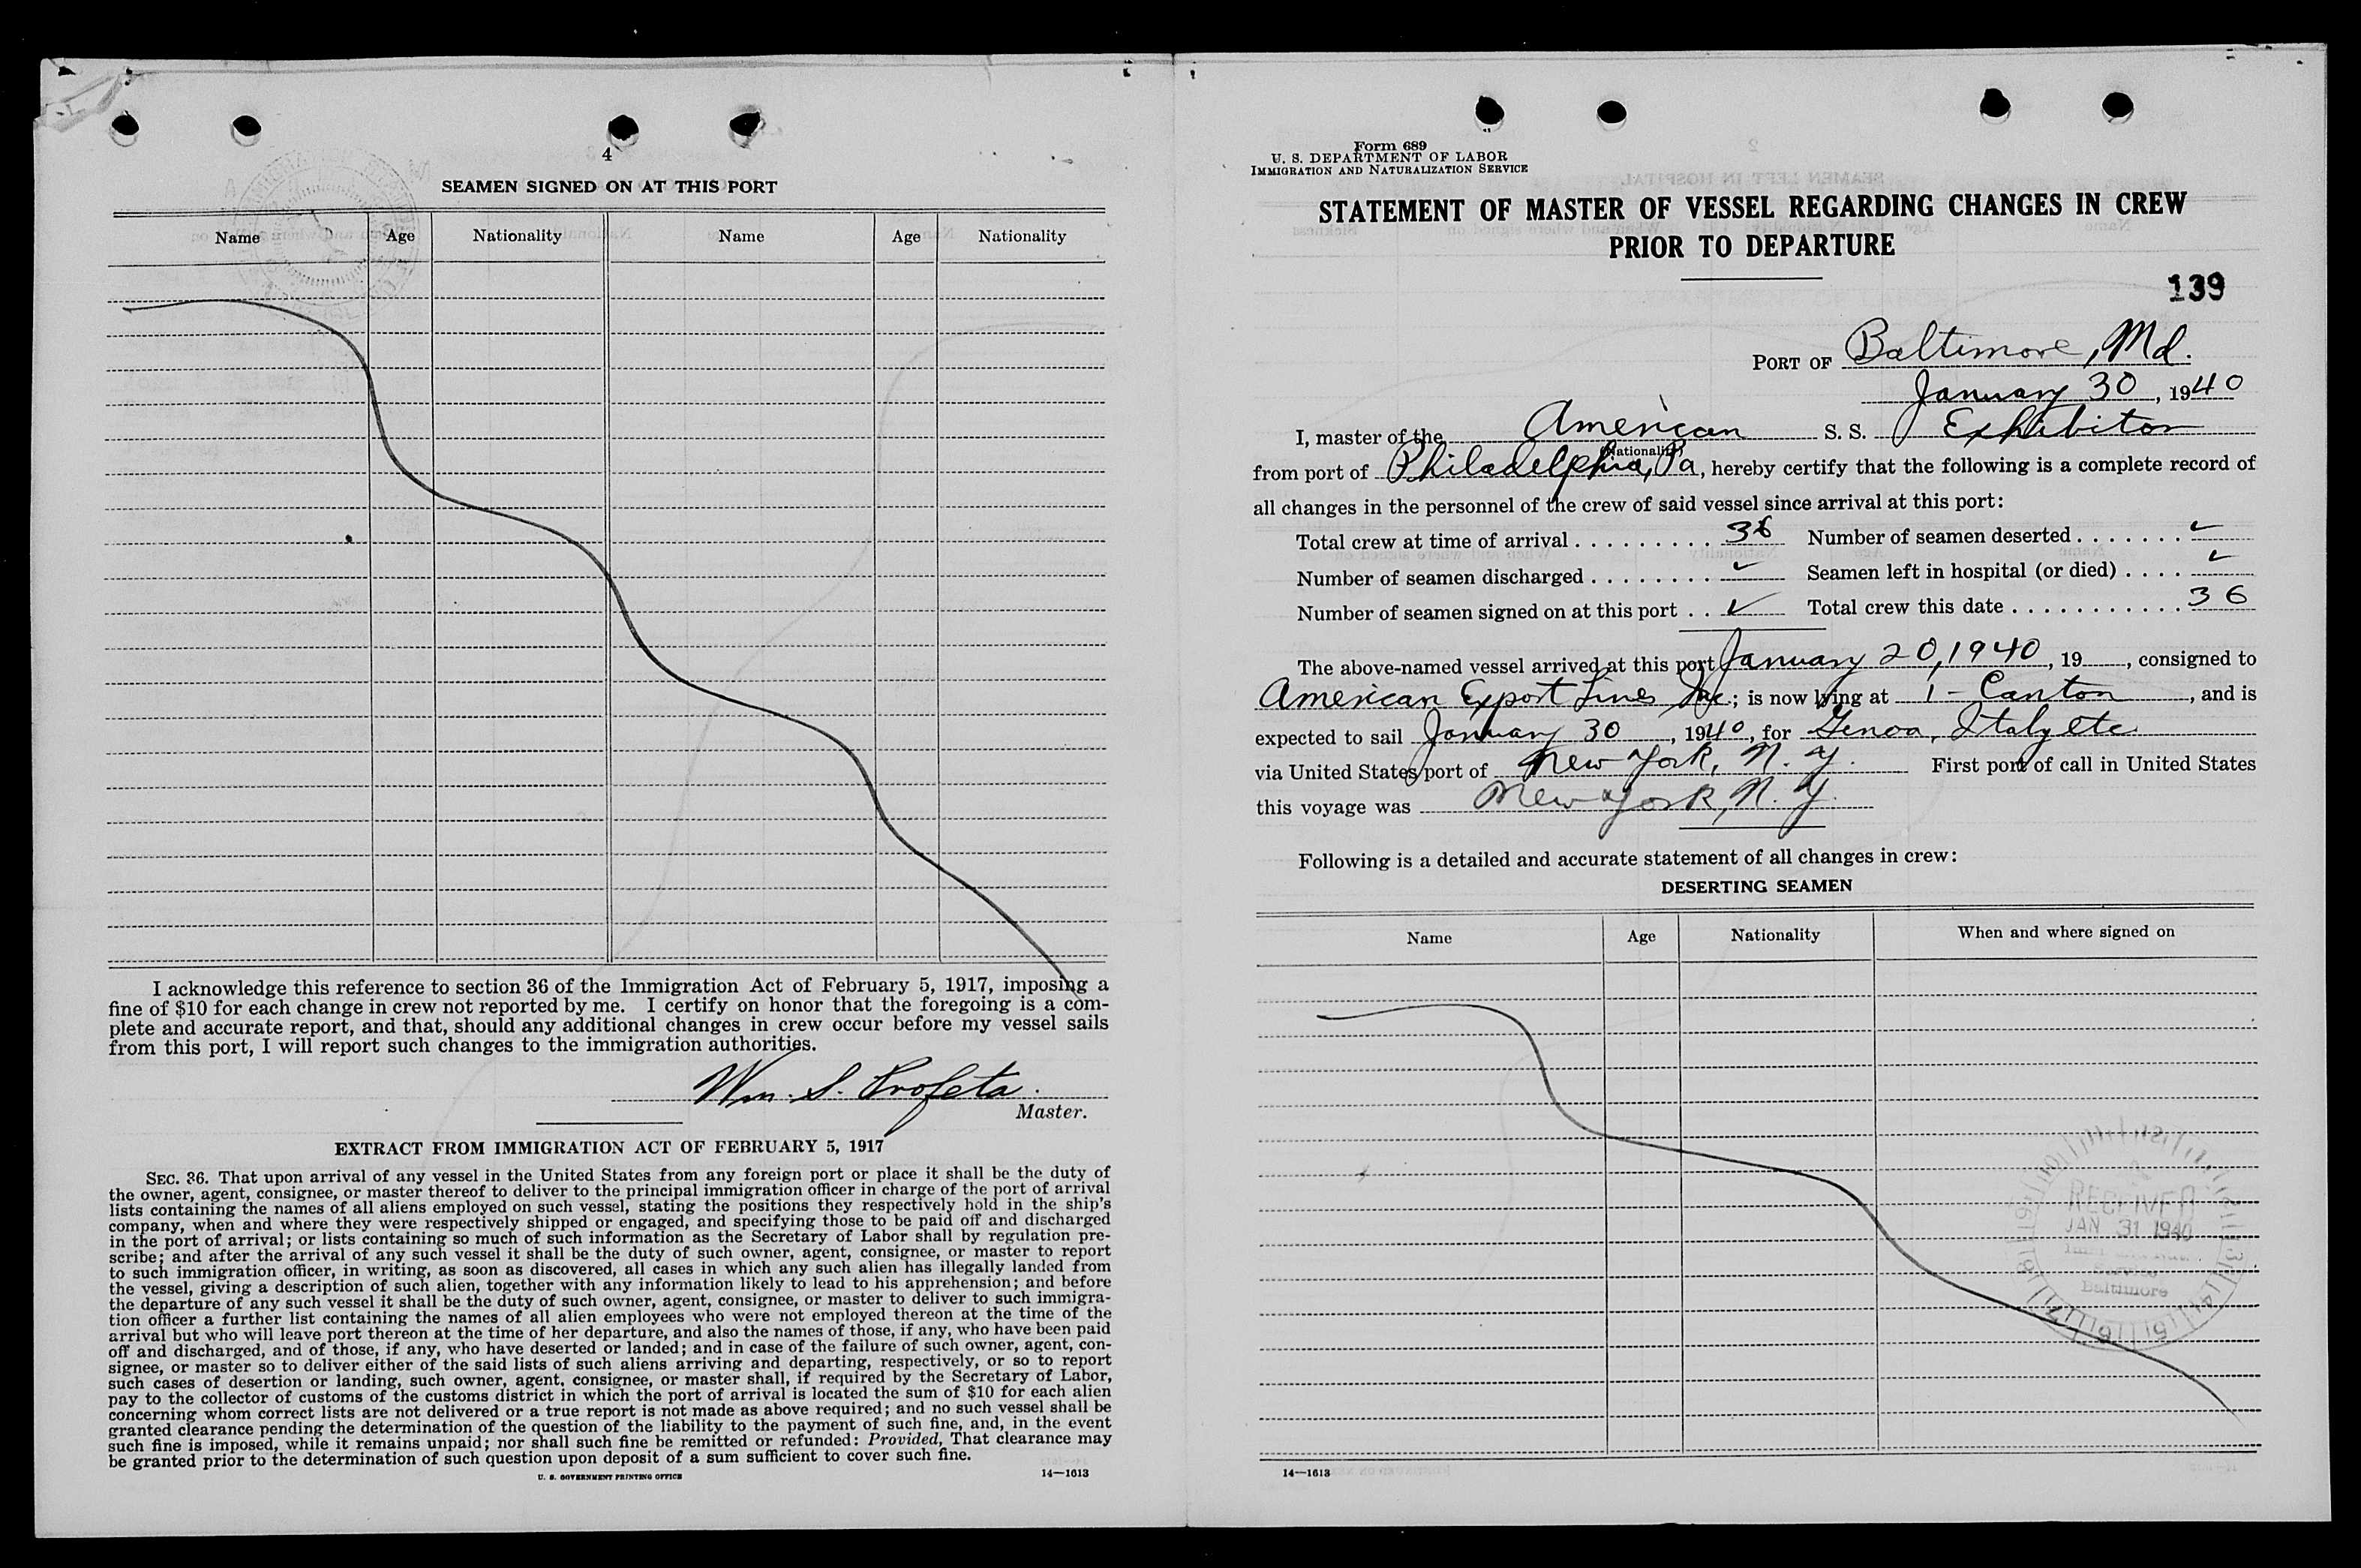 4
SEAMEN SIGNED ON AT THIS PORT
Name Age Nationality Name Age Nationality
I acknowledge this reference to section 36 of the Immigration Act of February 5, 1917, imposing a
fine of $10 for each change in crew not reported by me. I certify on honor that the foregoing is a com-
plete and accurate report, and that, should any additional changes in crew occur before my vessel sails
from this port, I will report such changes to the immigration authorities.
Wm. S. Profeta.
Master.
EXTRACT FROM IMMIGRATION ACT OF FEBRUARY 5, 1917
SEC. 36. That upon arrival of any vessel in the United States from any foreign port or place it shall be the duty of
the owner, agent, consignee, or master thereof to deliver to the principal immigration officer in charge of the port of arrival
lists containing the names of all aliens employed on such vessel, stating the positions they respectively hold in the ship's
company, when and where they were respectively shipped or engaged, and specifying those to be paid off and discharged
in the port of arrival; or lists containing so much of such information as the Secretary of Labor shall by regulation pre-
scribe; and after the arrival of any such vessel it shall be the duty of such owner, agent, consignee, or master to report
to such immigration officer, in writing, as soon as discovered, all cases in which any such alien has illegally landed from
the vessel, giving a description of such alien, together with any information likely to lead to his apprehension; and before
the departure of any such vessel it shall be the duty of such owner, agent, consignee, or master to deliver to such immigra-
tion officer a further list containing the names of all alien employees who were not employed thereon at the time of the
arrival but who will leave port thereon at the time of her departure, and also the names of those, if any, who have been paid
off and discharged, and of those, if any, who have deserted or landed; and in case of the failure of such owner, agent, con-
signee, or master so to deliver either of the said lists of such aliens arriving and departing, respectively, or so to report
such cases of desertion or landing, such owner, agent, consignee, or master shall, if required by the Secretary of Labor,
pay to the collector of customs of the customs district in which the port of arrival is located the sum of $10 for each alien
concerning whom correct lists are not delivered or a true report is not made as above required; and no such vessel shall be
granted clearance pending the determination of the question of the liability to the payment of such fine, and, in the event
such fine is imposed, while it remains unpaid; nor shall such fine be remitted or refunded: Provided, That clearance may
be granted prior to the determination of such question upon deposit of a sum sufficient to cover such fine.
U. S. GOVERNMENT PRINTING OFFICE 14—1613
Form 689
U. S. DEPARTMENT OF LABOR
IMMIGRATION AND NATURALIZATION SERVICE
STATEMENT OF MASTER OF VESSEL REGARDING CHANGES IN CREW
PRIOR TO DEPARTURE
139
PORT OF Baltimore, Md.
January 30, 1940
I, master of the American S. S. Exhibitor
(Nationality)
from port of Philadelphia, Pa, hereby certify that the following is a complete record of
all changes in the personnel of the crew of said vessel since arrival at this port:
Total crew at time of arrival . . . . . . . . . 36 Number of seamen deserted . . . . . . . ✓
Number of seamen discharged . . . . . . . . ✓ Seamen left in hospital (or died) . . . . ✓
Number of seamen signed on at this port . . ✓ Total crew this date . . . . . . . . . . . 36
The above-named vessel arrived at this port January 20, 1940, 19 , consigned to
American Export Lines Inc.; is now lying at 1 - Canton, and is
expected to sail January 30, 1940, for Genoa, Italy etc
via United States port of New York, N. Y. First port of call in United States
this voyage was New York, N. Y.
Following is a detailed and accurate statement of all changes in crew:
DESERTING SEAMEN
Name Age Nationality When and where signed on
RECEIVED
JAN 31 1940
Service
Baltimore
14—1613